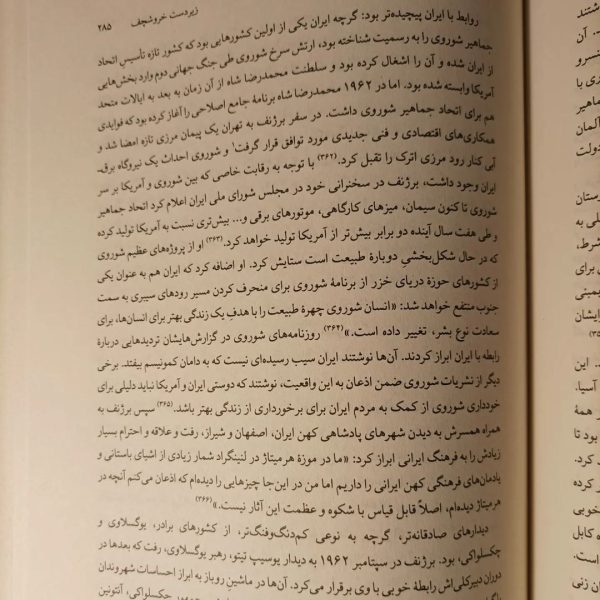 زیردست خروشچف ۲۸۵
روابط با ایران پیچیده‌تر بود: گرچه ایران یکی از اولین کشورهایی بود که کشور تازه تأسیس اتحاد
جماهیر شوروی را به رسمیت شناخته بود، ارتش سرخ شوروی طی جنگ جهانی دوم وارد بخش‌هایی
از ایران شده و آن را اشغال کرده بود و سلطنت محمدرضا شاه از آن زمان به بعد به ایالات متحد
آمریکا وابسته شده بود. اما در ۱۹۶۲ محمدرضا شاه برنامهٔ جامع اصلاحی را آغاز کرده بود که فوایدی
هم برای اتحاد جماهیر شوروی داشت. در سفر برژنف به تهران یک پیمان مرزی تازه امضا شد و
همکاری‌های اقتصادی و فنی جدیدی مورد توافق قرار گرفت؛ و شوروی احداث یک نیروگاه برق‌ـ
آبی کنار رود مرزی اترک را تقبل کرد.(۳۶۲) با توجه به رقابت خاصی که بین شوروی و آمریکا بر سر
ایران وجود داشت، برژنف در سخنرانی خود در مجلس شورای ملی ایران اعلام کرد اتحاد جماهیر
شوروی تا کنون سیمان، میزهای کارگاهی، موتورهای برقی و... بیش‌تری نسبت به آمریکا تولید کرده
و طی هفت سال آینده دو برابر بیش‌تر از آمریکا تولید خواهد کرد.(۳۶۳) او از پروژه‌های عظیم شوروی
که در حال شکل‌بخشیِ دوبارهٔ طبیعت است ستایش کرد. او اضافه کرد که ایران هم به عنوان یکی
از کشورهای حوزه دریای خزر از برنامهٔ شوروی برای منحرف کردن مسیر رودهای سیبری به سمت
جنوب منتفع خواهد شد: «انسان شوروی چهرهٔ طبیعت را با هدفِ یک زندگی بهتر برای انسان‌ها، برای
سعادت نوع بشر، تغییر داده است.»(۳۶۴) روزنامه‌های شوروی در گزارش‌هایشان تردیدهایی دربارهٔ
رابطه با ایران ابراز کردند. آن‌ها نوشتند ایران سیب رسیده‌ای نیست که به دامان کمونیسم بیفتد. برخی
دیگر از نشریات شوروی ضمن اذعان به این واقعیت، نوشتند که دوستی ایران و آمریکا نباید دلیلی برای
خودداری شوروی از کمک به مردم ایران برای برخورداری از زندگی بهتر باشد.(۳۶۵) سپس برژنف به
همراه همسرش به دیدن شهرهای پادشاهی کهن ایران، اصفهان و شیراز، رفت و علاقه و احترام بسیار
زیادش را به فرهنگ ایرانی ابراز کرد: «ما در موزهٔ هرمیتاژ در لنینگراد شمار زیادی از اشیای باستانی و
یادمان‌های فرهنگی کهن ایرانی را داریم اما من در این‌جا چیزهایی را دیده‌ام که اذعان می‌کنم آنچه در
هرمیتاژ دیده‌ام، اصلاً قابل قیاس با شکوه و عظمت این آثار نیست.»(۳۶۶)
دیدارهای صادقانه‌تر، گرچه به نوعی کم‌دنگ‌وفنگ‌تر، از کشورهای برادر، یوگسلاوی و
چکسلواکی، بود. برژنف در سپتامبر ۱۹۶۲ به دیدار یوسیپ تیتو، رهبر یوگسلاوی، رفت که بعدها در
دوران دبیرکلی‌اش رابطهٔ خوبی با وی برقرار می‌کرد. آن‌ها در ماشینِ روباز به ابراز احساسات شهروندان
جمهور چکسلواکی، آنتونین